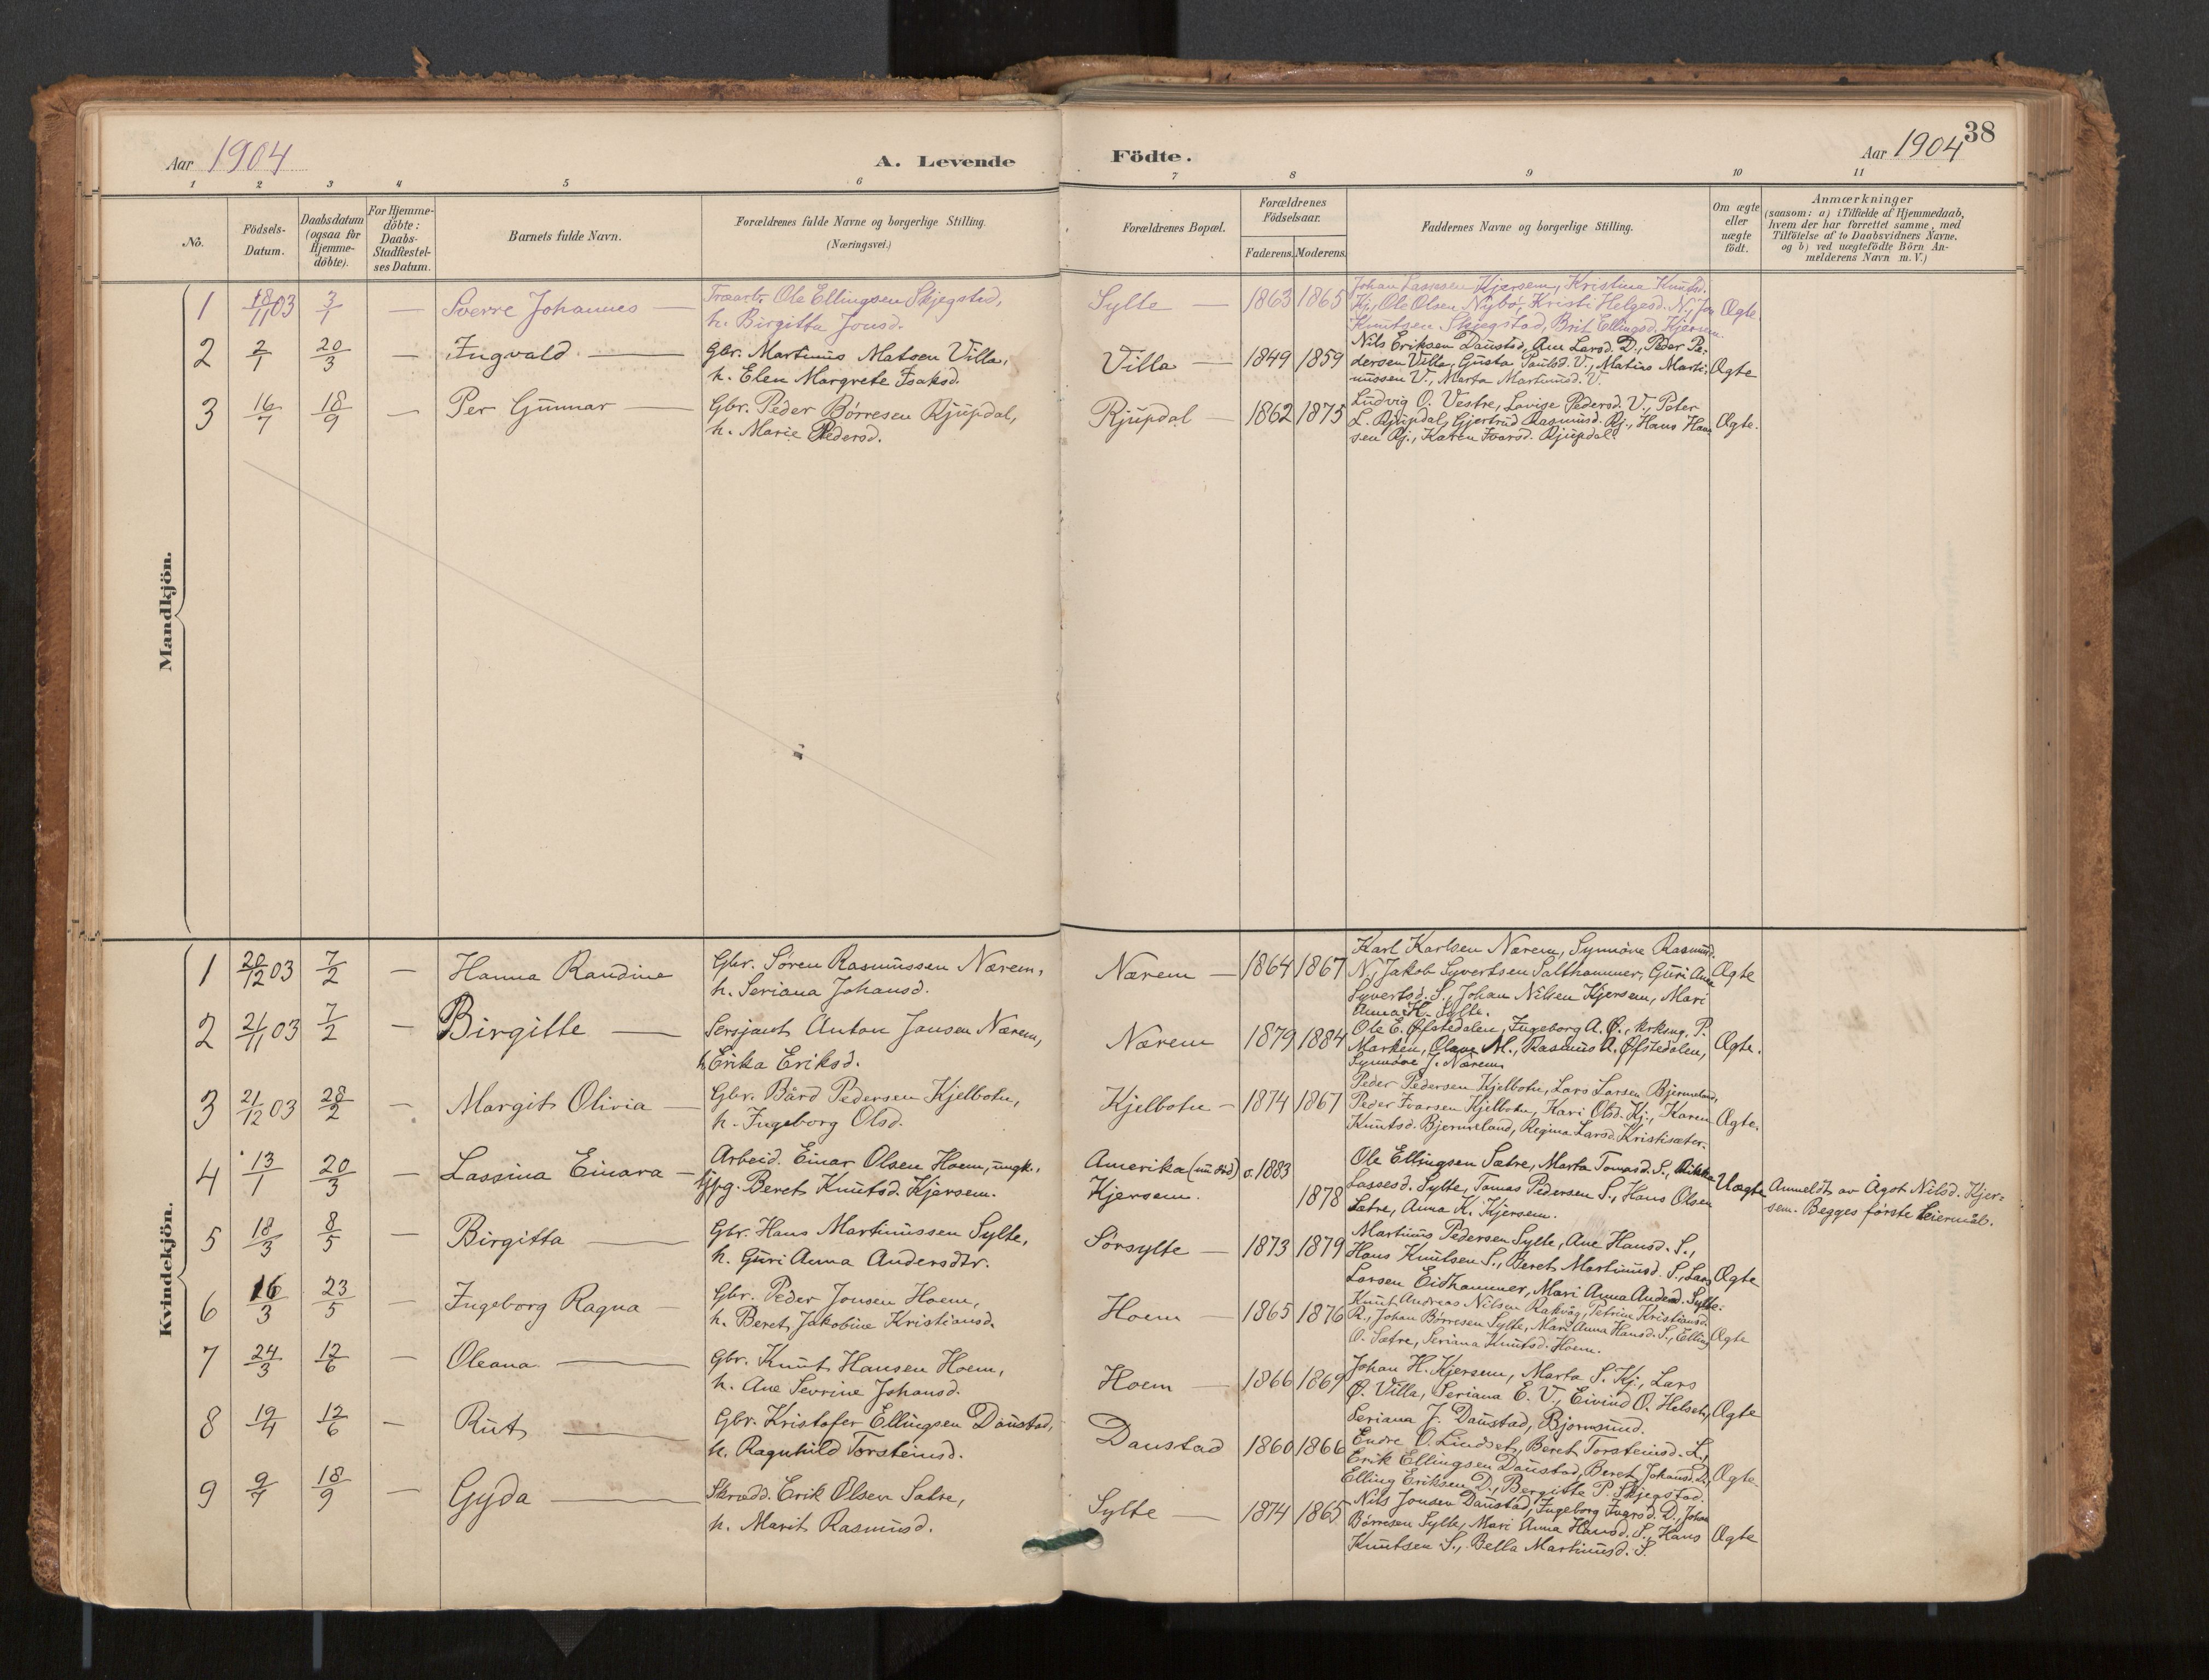 Aar 1904
A. Levende
Födte.
Aar 1904
38
1 2 3 4 5 6 7 8 9 10 11
No.
Födsels-Datum.
Daabsdatum (ogsaa för Hjemme-döbte).
For Hjemme-döbte: Daabs-Stadfæstel-ses Datum.
Barnets fulde Navn.
Forældrenes fulde Navne og borgerlige Stilling.
(Næringsvei.)
Forældrenes Bopæl.
Forældrenes Födselsaar.
Faderens. Moderens.
Faddernes Navne og borgerlige Stilling.
Om ægte eller uægte födt.
Anmærkninger
(saasom: a) i Tilfælde af Hjemmedaab,
hvem der har forrettet samme, med
Tilföielse af to Daabsvidners Navne.
og b) ved uægtefödte Börn An-
melderens Navn m. V.)
Mandkjön.
1 18/11 03 3/1 — Sverre Johannes — Træarb. Ole Ellingsen Skjegstad,
h. Birgitta Jonsd.
Sylte — 1863 1865 Johan Lassesen Kjersem, Kristina Knutsd.
Kj., Ole Olsen Nybø, Kristi Helgesd. N., Jon
Knutsen Skjegstad, Brit Ellingsd. Kjersem.
Ægte.
2 2/1 20/3 — Ingvald — Gbr. Martinus Matsen Villa,
h. Elen Margrete Isaksd.
Villa — 1849 1859 Nils Eriksen Daustad, Ane Larsd. D., Peder Pe-
dersen Villa, Gusta Paulsd. V., Matias Marti-
nussen V., Marta Martinusd. V.
Ægte
3 16/7 18/9 — Per Gunnar — Gbr. Peder Børresen Rjupdal,
h. Marie Pedersd.
Rjupdal — 1862 1875 Ludvig O. Vestre, Lovise Pedersd. V., Peter
L. Rjupdal, Gjertrud Rasmusd. Rj., Hans Han-
sen Rj., Karen Ivarsd. Rjupdal.
Ægte.
Kvindekjön.
1 20/12 03 7/2 — Hanna Randine Gbr. Søren Rasmussen Nærem,
h. Seriana Johansd.
Nærem — 1864 1867 Karl Karlsen Nærem, Synnøve Rasmusd.
N., Jakob Syvertsen Salthammer, Guri Anna
Syvertsd. S., Johan Nilsen Kjersem, Mari
Anna H. Sylte.
Ægte
2 21/11 03 7/2 — Birgitte — Sersjant Anton Jansen Nærem,
h. Erika Eriksd.
Nærem 1879 1884 Ole E. Øfstedalen, Ingeborg A. Ø., kirksng. P.
Marken, Olave M., Rasmus A. Øfstedalen,
Synnøve J. Nærem.
Ægte.
3 21/12 03 28/2 — Margit Olivia — Gbr. Bård Pedersen Kjelbotn,
h. Ingeborg Olsd.
Kjelbotn — 1874 1867 Peder Pedersen Kjelbotn, Lars Larsen Bjermeland,
Peder Ivarsen Kjelbotn, Kari Olsd. Kj., Karen
Knutsd. Bjermeland, Regina Larsd. Kristisæter.
Ægte.
4 13/1 20/3 — Lassina Einara — Arbeid. Einar Olsen Hoem, ungk.,
Beret Knutsd. Kjersem.
Amerika
Kjersem.
1883
1878
Ole Ellingsen Sætre, Marta Tomasd. S., Rikka
Lassesd. Sylte, Tomas Pedersen S., Hans Olsen
Sætre, Anna K. Kjersem.
Uægte Anmeldt av Ågot Nilsd. Kjer-
sem. Begges første Leiermål.
5 18/3 8/5 — Birgitta — Gbr. Hans Martinussen Sylte,
h. Guri Anna Andersdtr.
Sørsylte — 1873 1879 Martinus Pedersen Sylte, Ane Hansd. S.,
Hans Knutsen S., Beret Martinusd. S., Lars
Larsen Eidhammer, Mari Anna Andersd. Sylte.
Ægte
6 16/3 23/5 — Ingeborg Ragna — Gbr. Peder Jonsen Hoem,
h. Beret Jakobine Kristiansd.
Hoem — 1865 1876 Knut Andreas Nilsen Rakvåg, Petrine Kristiansd.
R., Johan Børresen Sylte, Mari Anna Hansd. S., Elling
O. Sætre, Seriana Knutsd. Hoem.
Ægte
7 24/3 12/6 — Oleana. — Gbr. Knut Hansen Hoem,
h. Ane Sevrine Johansd.
Hoem — 1866 1869 Johan H. Kjersem, Marta S. Kj., Lars
Ø. Villa, Seriana E. V., Eivind O. Helset,
Seriana J. Daustad, Bjornsund.
Ægte
8 19/4 12/6 — Rut — Gbr. Kristofer Ellingsen Daustad,
h. Ragnhild Torsteinsd.
Daustad 1860 1866 Endre O. Lindset, Beret Torsteinsd. L.,
Erik Ellingsen Daustad, Beret Johansd. D.,
Elling Eriksen D., Bergitte P. Skjegstad.
Ægte
9 9/7 18/9 — Gyda — Skrædd. Erik Olsen Sætre,
h. Marit Rasmusd.
Sylte — 1874 1865 Nils Jonsen Daustad, Ingeborg Ingvsd. D., Johan
Børresen Sylte, Mari Anna Hansd. S., Hans
Knutsen S., Bella Martinusd. S.
Ægte